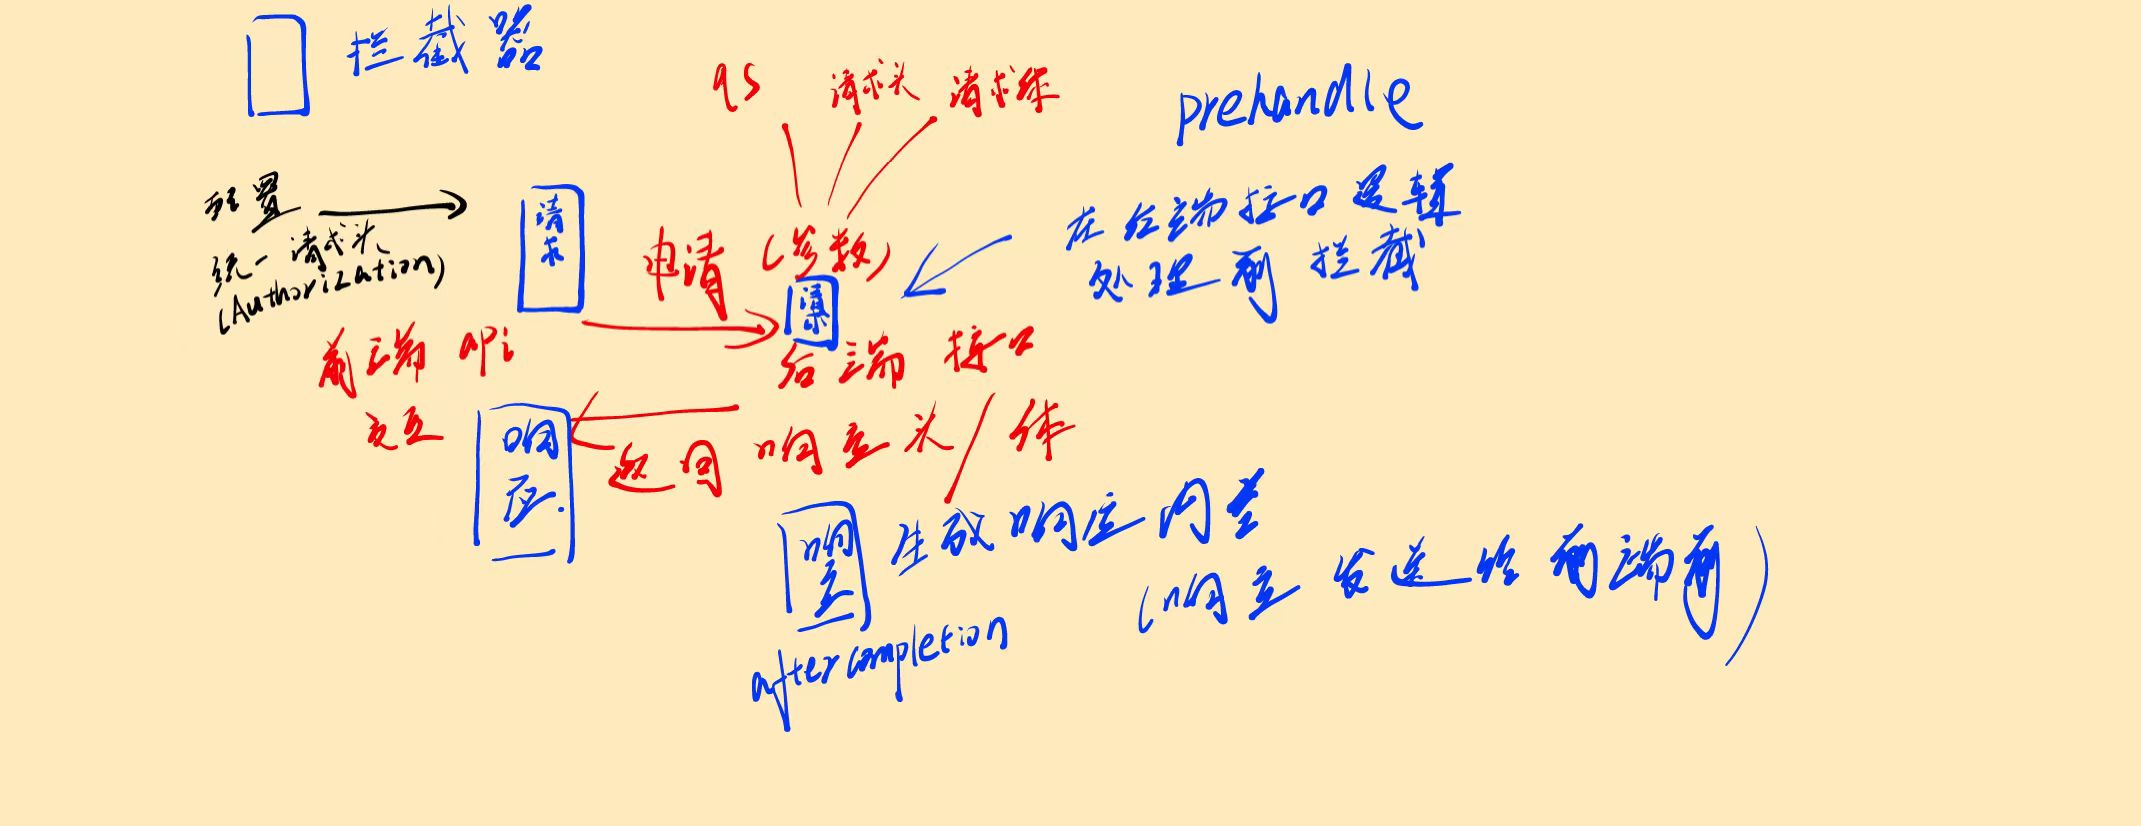 拦截器
qs 请求头 请求体
prehandle
配置
统一请求头
(Authorization)
请求
申请 (参数)
请求
在后端接口逻辑
处理前拦截
前端 api
交互
后端 接口
响应
返回 响应头/体
响应
生成响应内容
(响应发送给前端前)
aftercompletion